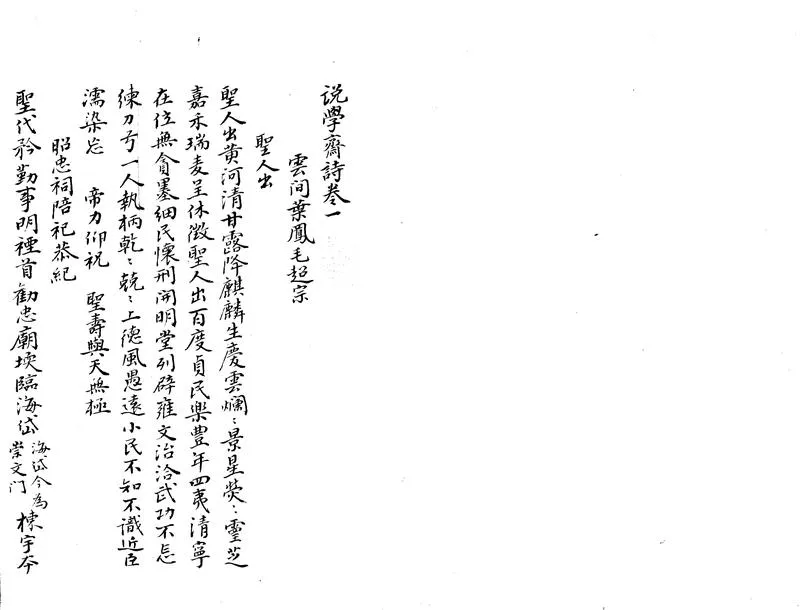 说學齋詩卷一
雲间葉鳳毛超宗
聖人出
聖人出黄河清甘露降麒麟生慶雲爛〻景星熒〻靈芝
嘉禾瑞麦呈休徵聖人出百度貞民樂豊年四夷清寧
在位無貪墨細民懷刑開明堂列辟雍文治洽武功不忘
練刀弓一人執柄乾〻兢〻上德風愚遠小民不知不識近臣
濡染忘 帝力仰祝 聖壽與天無極
昭忠祠陪祀恭紀
聖代矜勤事明禋首勸忠廟堧臨海岱海岱今為崇文门棟宇夲